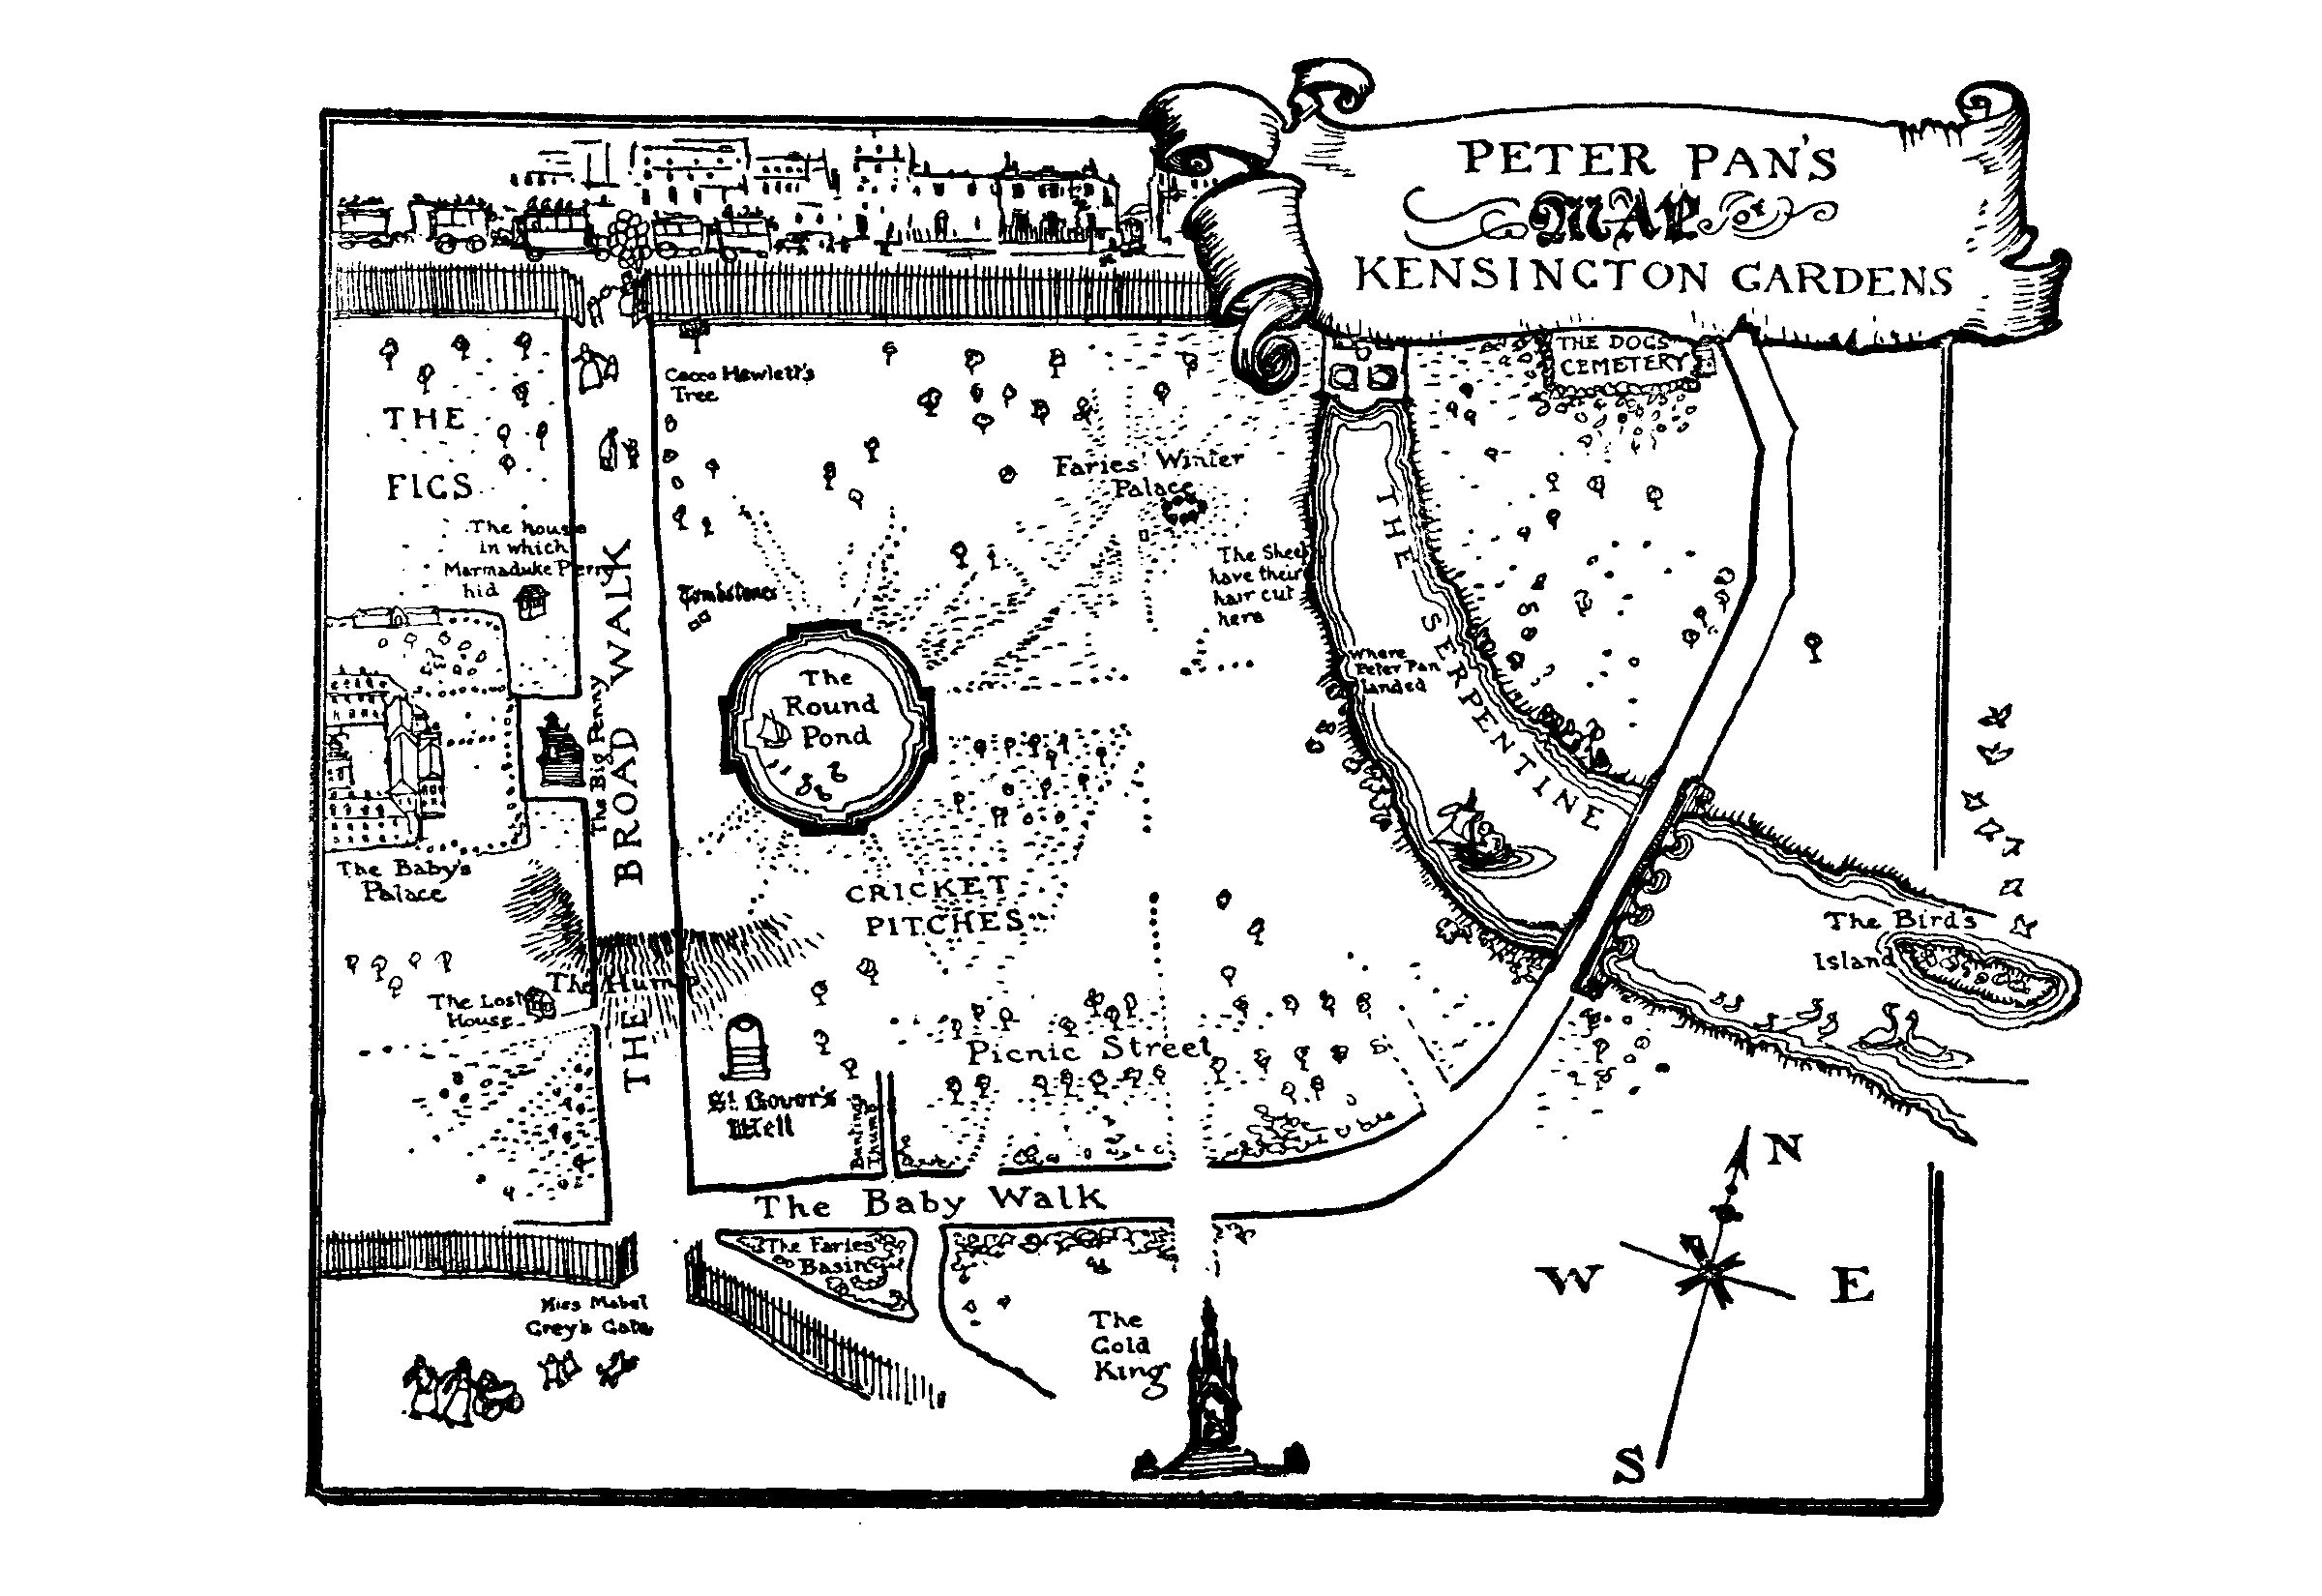 PETER PAN'S
MAP OF
KENSINGTON GARDENS
THE DOGS
CEMETERY
Cecco Hewlett's
Tree
THE
FIGS
Faries Winter
Palace
The house
in which
Marmaduke Perry
hid
The Sheep
have their
hair cut
here
Tombstones
THE SERPENTINE
where
Peter Pan
landed
The
Round
Pond
The Big Penny
THE BROAD WALK
The Baby's
Palace
CRICKET
PITCHES
The Bird's
Island
The Hump
The Lost
House
Picnic Street
St. Govor's
Well
Bunting's
Thumb
The Baby Walk
The Faries
Basin
Miss Mabel
Grey's Gate
The
Gold
King
N
W E
S